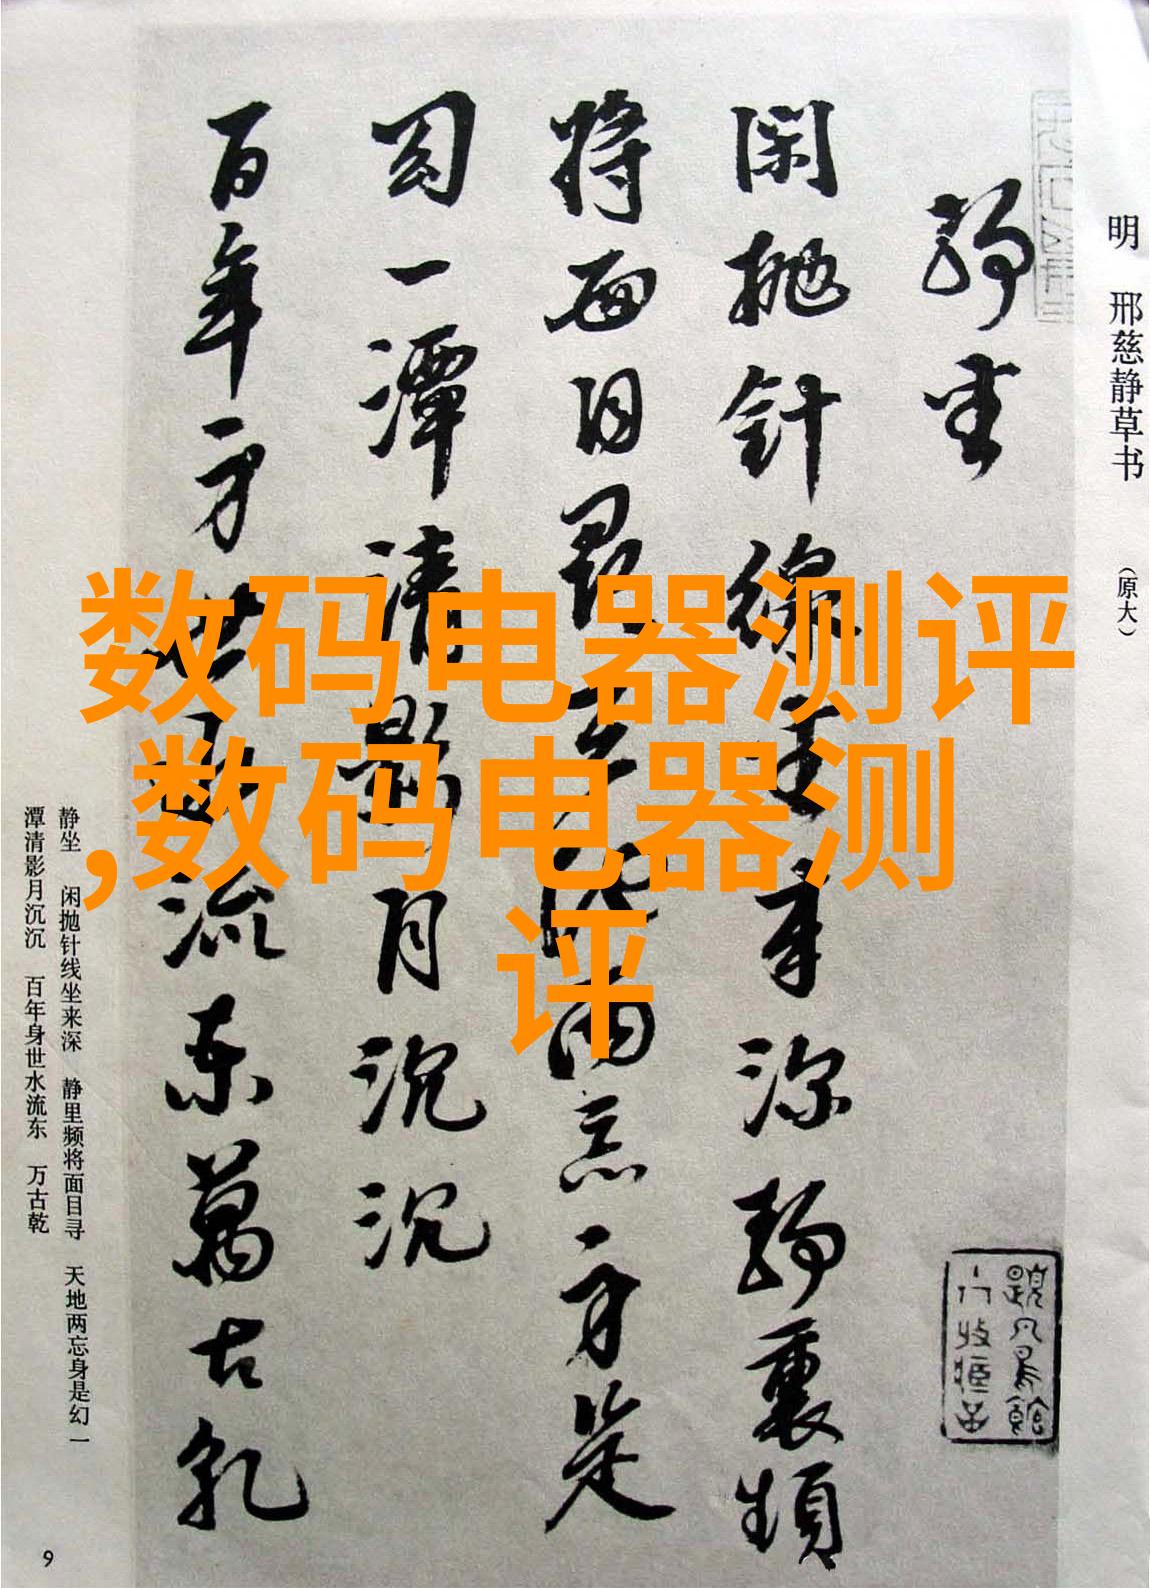 明 邢慈静草书 （原大）
静坐
閑抛針線坐来深静裏頻
将面目尋天地兩忘身是
幻一潭清影月沉沉
百年身世水流東萬古乾
数码电器测评
,数码电器测
评
静坐 闲抛针线坐来深 静里频将面目寻 天地两忘身是幻 一
潭清影月沉沉 百年身世水流东 万古乾
9